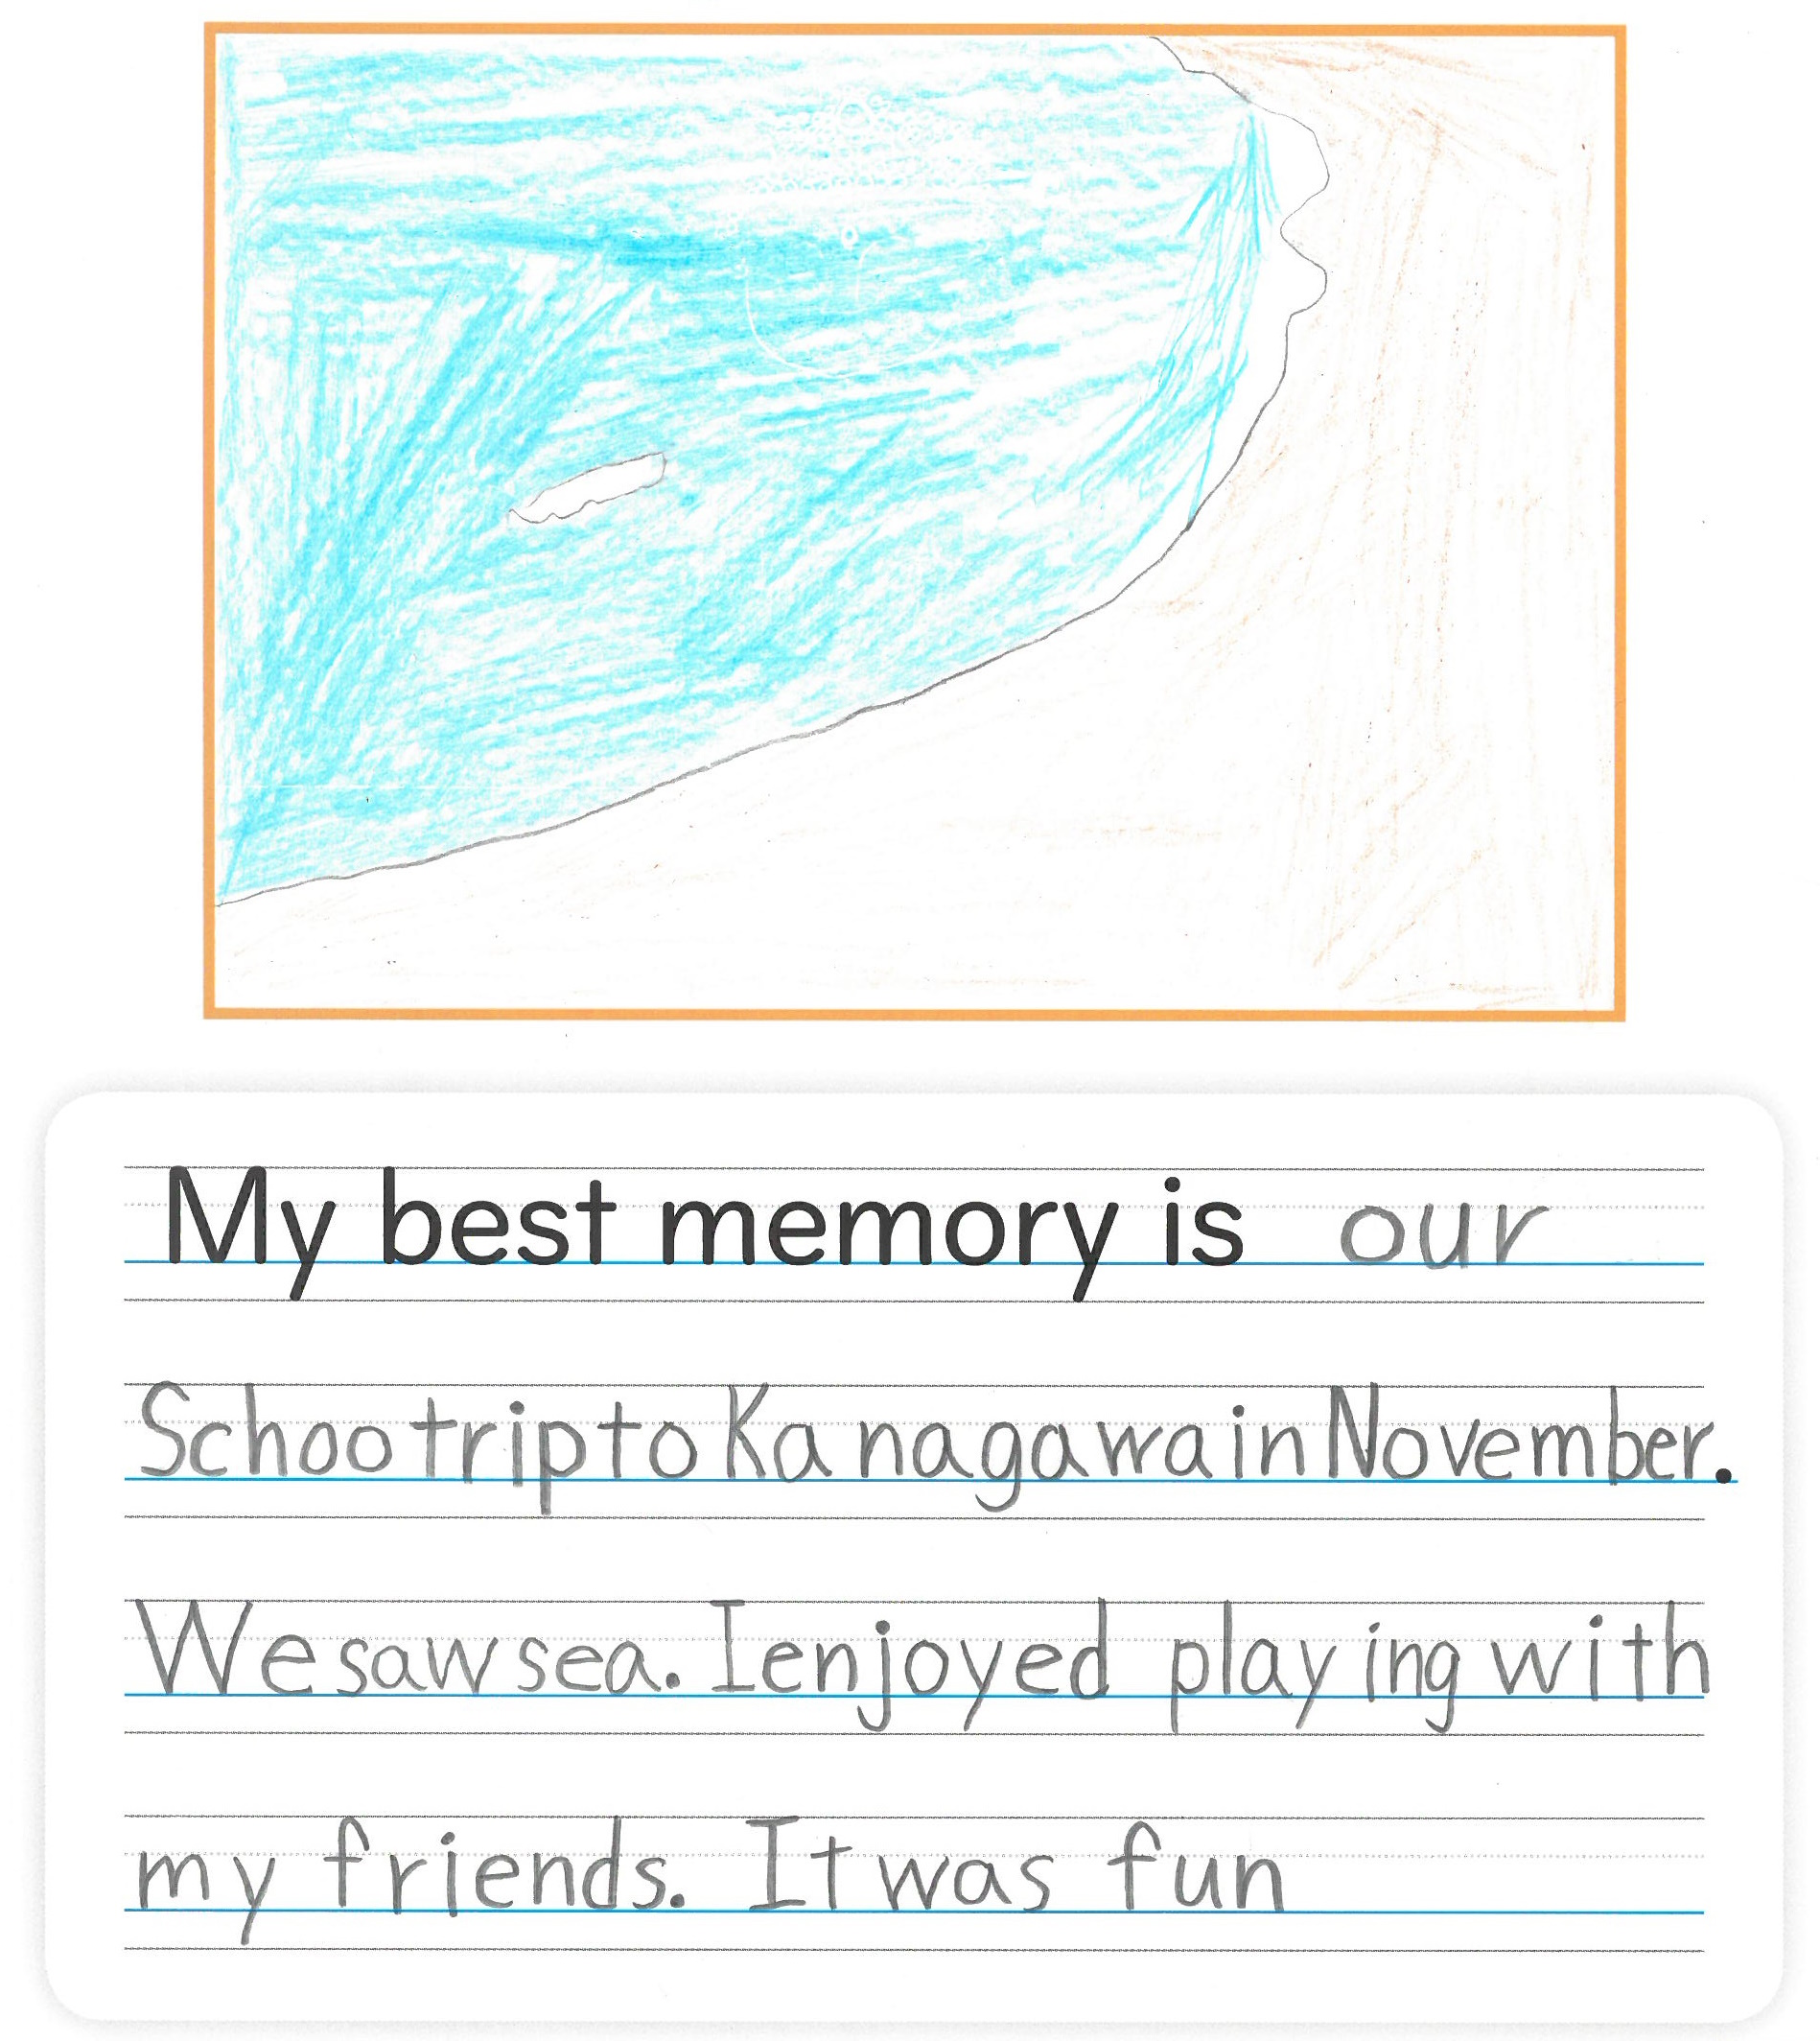 My best memory is our
Schoo trip to Kanagawa in November.
We saw sea. I enjoyed playing with
my friends. It was fun